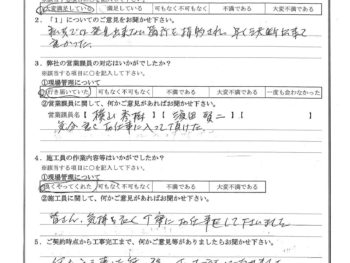 大変満足している 満足している 可もなく不可もなく 不満である 大変不満である
2.「1」についてのご意見をお聞かせ下さい。
3. 弊社の営業職員の対応はいかがでしたか?
※該当する項目に○を記入して下さい。
①現場管理について
行き届いていた 可もなく不可もなく 不満である 大変不満である 一度も会わなかった
②営業職員に関して、何かご意見があればお聞かせ下さい。
営業職員名【 】【 】【 】
気分良くお仕事に入って頂けた。
4. 施工員の作業内容等はいかがでしたか?
※該当する項目に○を記入して下さい。
①現場管理について
良くやってくれた 可もなく不可もなく 不満である 大変不満である
②施工員に関して、何かご意見があればお聞かせ下さい。
皆さん、気持ち良く丁寧にお仕事をして下さいました
5. ご契約時点から工事完工まで、何かご意見等がありましたらお聞かせ下さい。